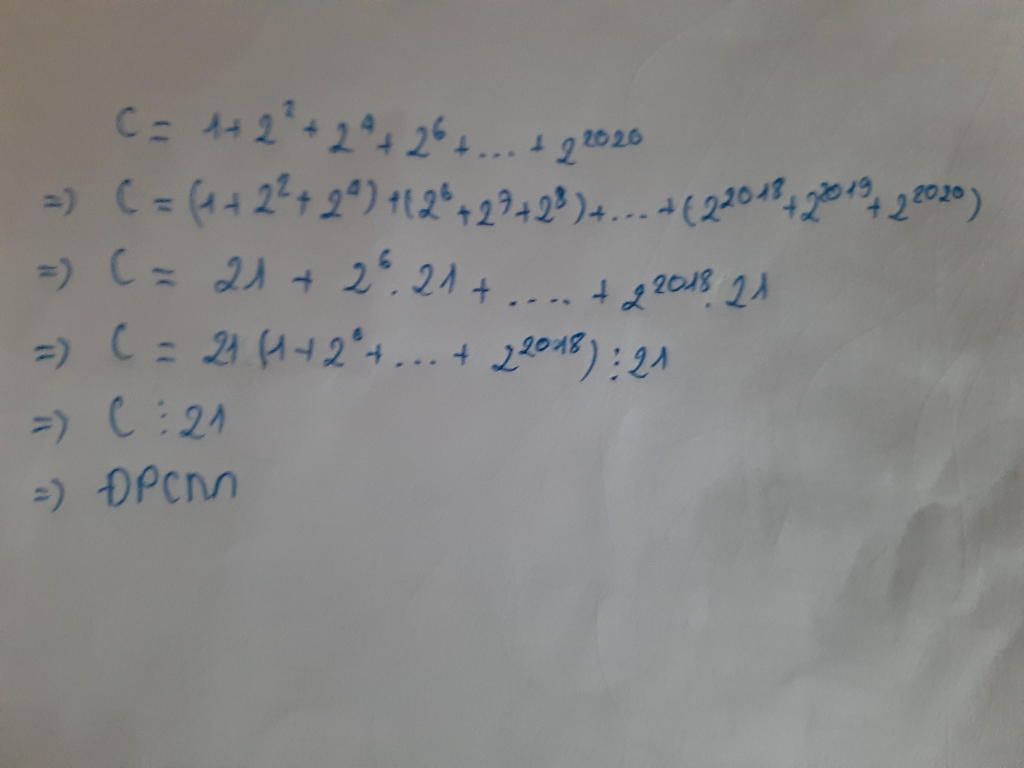 C = 1+2²+2⁴+2⁶+...+2²⁰²⁰
=) C = (1+2²+2⁴)+(2⁶+2⁷+2⁸)+...+(2²⁰¹⁸+2²⁰¹⁹+2²⁰²⁰)
=) C = 21 + 2⁶.21 + .... + 2²⁰¹⁸.21
=) C = 21 (1+2⁶+...+ 2²⁰¹⁸) ⋮ 21
=) C ⋮ 21
=) ĐPCM